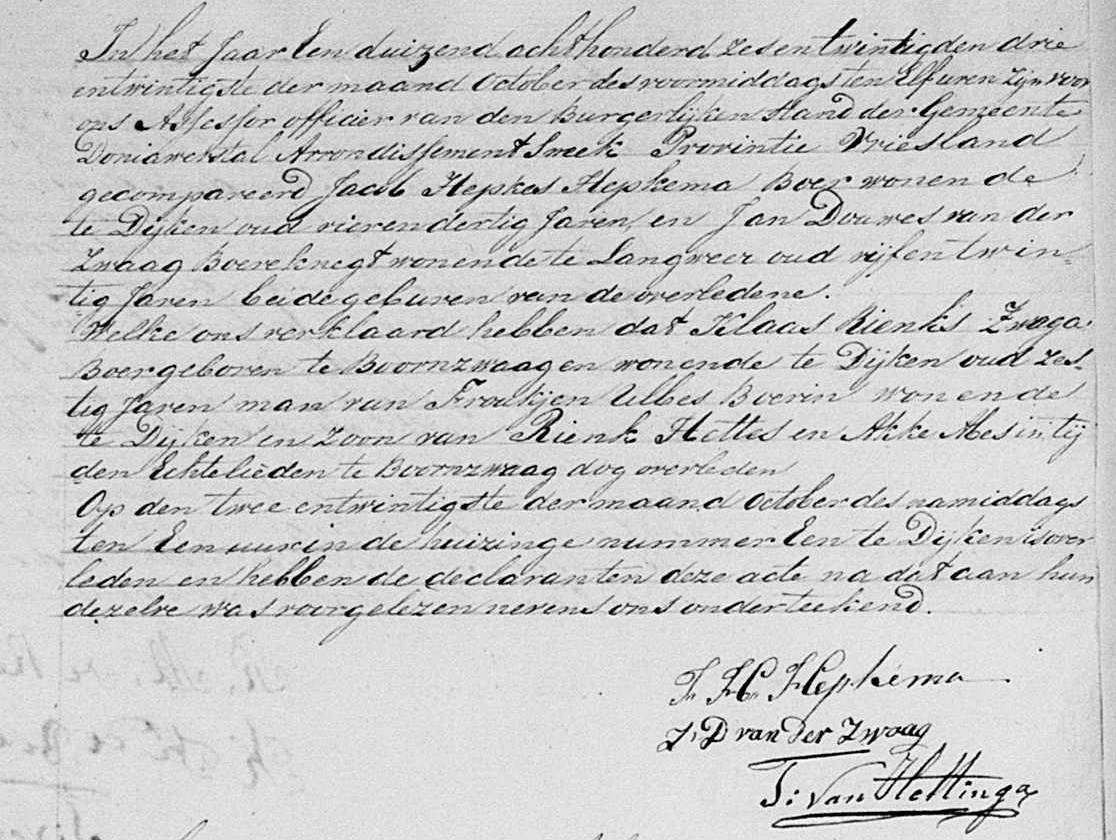 In het Jaar Een duizend achthonderd zesentwintig den drie
entwintigste der maand October des voormiddags ten Elf uren zijn voor
ons Assessor officier van den Burgerlijken stand der Gemeente
Doniawerstal Arrondissement Sneek Provintie Vriesland
gecompareerd Jacob Hepkes Hepkema Boer wonende
te Dijken oud vierendertig Jaren, en Jan Douwes van der
Zwaag Boereknegt wonende te Langweer oud vijfentwin-
tig Jaren beide geburen van de overledene.
Welke ons verklaard hebben dat Klaas Rienks Zwaga
Boer geboren te Boornzwaag en wonende te Dijken oud zes-
tig Jaren man van Froukjen Ulbes Boerin wonende
te Dijken en zoon van Rienk Hettes en Akke Ales in tij
den Echtelieden te Boornzwaag dog overleden
Op den twee entwintigste der maand October des namiddags
ten Een uur in de huizinge nummer Een te Dijken is over
leden en hebben de declaranten deze acte na dat aan hun
dezelve was voorgelezen nevens ons onderteekend.
J. H. Hepkema
J. D van der Zwaag
T: van Hettinga